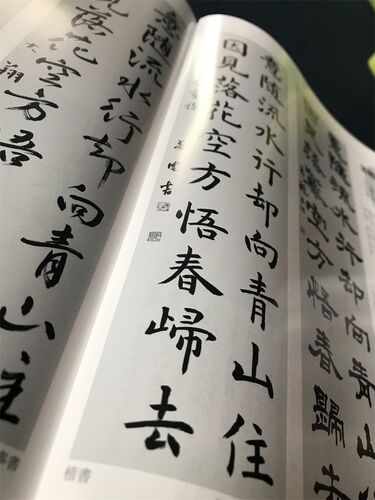 隨流水行却向青山
落花空方悟春歸去
意隨流水行却向青山住
因見落花空方悟春歸去
書
楷書
意隨流水行却向青山住
見落花空方悟
翔
書